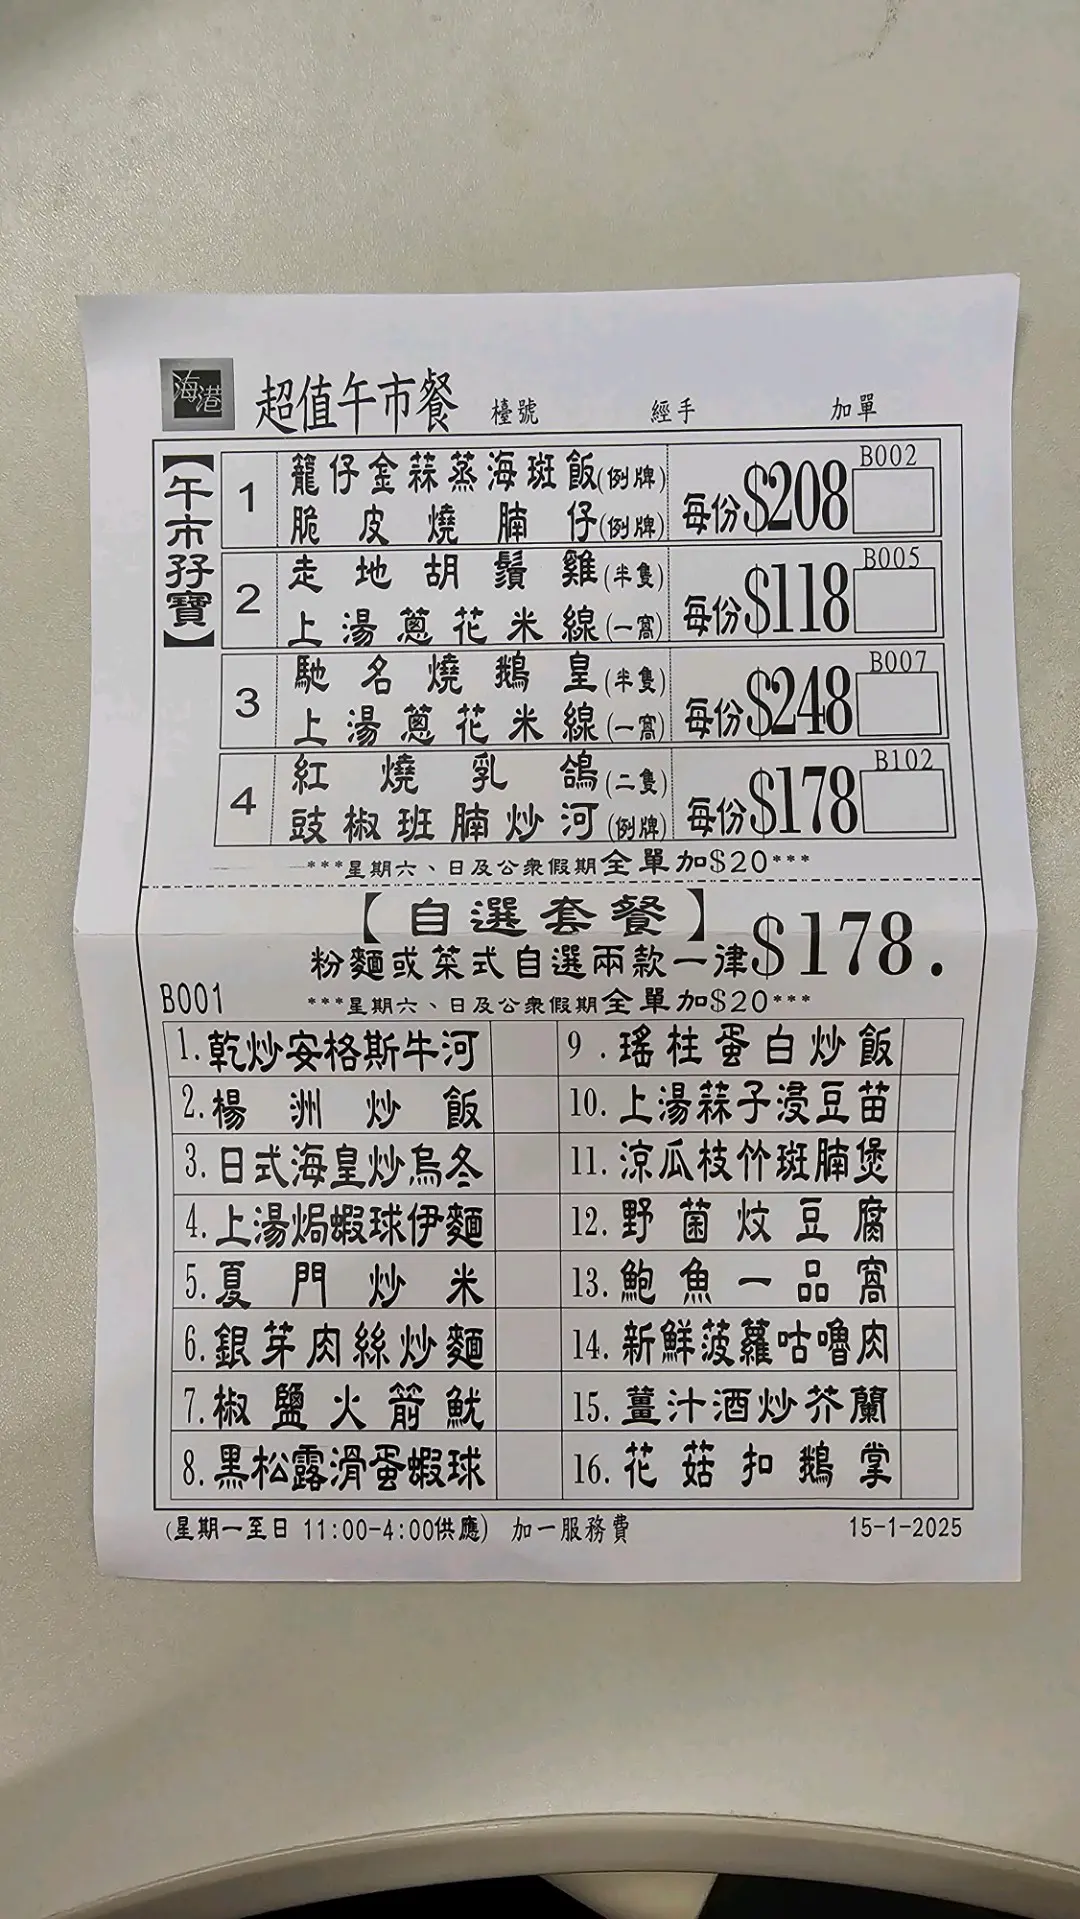 海港 超值午市餐 檯號 經手 加單
【午市孖寶】
1 籠仔金蒜蒸海斑飯(例牌) 每份$208 B002
脆皮燒腩仔(例牌)
2 走地胡鬚雞(半隻) 每份$118 B005
上湯蔥花米線(一窩)
3 馳名燒鵝皇(半隻) 每份$248 B007
上湯蔥花米線(一窩)
4 紅燒乳鴿(二隻) 每份$178 B102
豉椒班腩炒河(例牌)
***星期六、日及公眾假期全單加$20***
【自選套餐】
粉麵或菜式自選兩款一律$178.
B001 ***星期六、日及公眾假期全單加$20***
1.乾炒安格斯牛河
2.楊洲炒飯
3.日式海皇炒烏冬
4.上湯焗蝦球伊麵
5.夏門炒米
6.銀芽肉絲炒麵
7.椒鹽火箭魷
8.黑松露滑蛋蝦球
9.瑤柱蛋白炒飯
10.上湯蒜子浸豆苗
11.涼瓜枝竹斑腩煲
12.野菌炆豆腐
13.鮑魚一品窩
14.新鮮菠蘿咕嚕肉
15.薑汁酒炒芥蘭
16.花菇扣鵝掌
(星期一至日 11:00-4:00供應) 加一服務費 15-1-2025